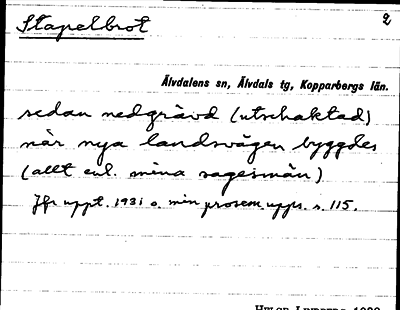 Stapelbrot 2
Älvdalens sn, Älvdals tg, Kopparbergs län.
sedan nedgrävd (utschaktad)
när nya landsvägen byggdes
(allt enl. mina sagesmän)
Jfr uppt. 1931 o. min prosem.uppts. s. 115.